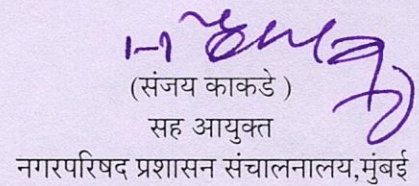 (संजय काकडे )
सह आयुक्त
नगरपरिषद प्रशासन संचालनालय,मुंबई